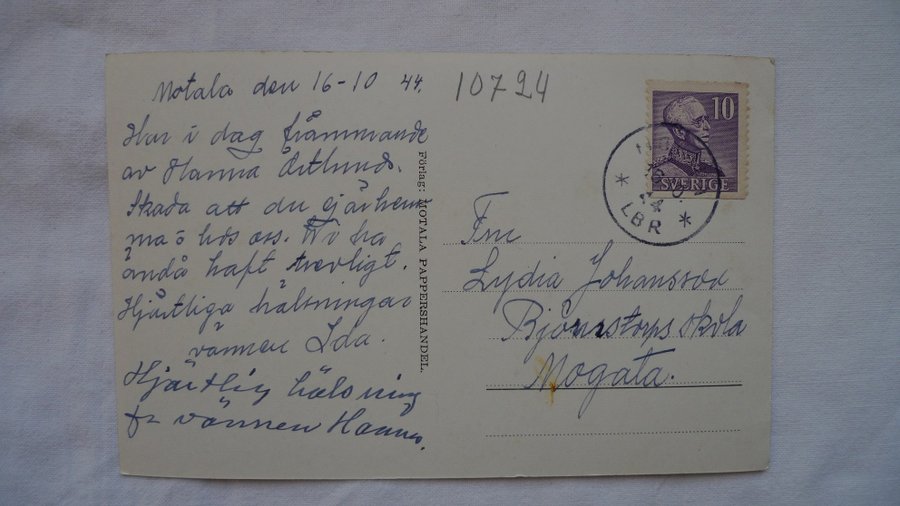 Motala den 16-10 44.
Har i dag främmande
av Hanna Östlunds.
Skada att du ej är hem
ma hos oss. Vi ha
ändå haft trevligt.
Hjärtliga hälsningar
vännen Ida.
Hjärtlig hälsning
fr vännen Hanna.
Förlag: MOTALA PAPPERSHANDEL.
10724
10
SVERIGE
LBR
Frn
Lydia Johansson
Björnstorps skola
Mogata.